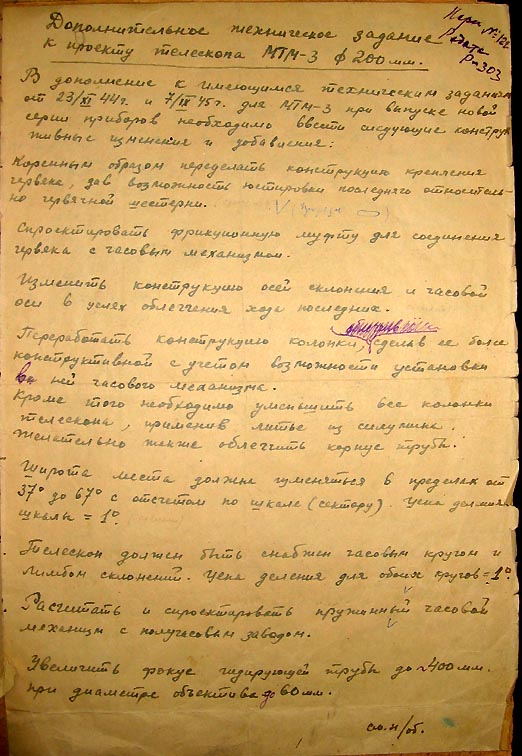 Дополнительное техническое задание
к проекту телескопа МТМ-3 ф 200мм.
Рм 303
В дополнение к имеющимся техническим заданиям
от 23/XI 44г. и 7/III 45г. для МТМ-3 при выпуске новой
серии приборов необходимо ввести следующие конструк
живные изменения и добавления:
Коренным образом переделать конструкцию крепления
червяка, дав возможность юстировки последнего относитель-
но червячной шестерни.
Спроектировать фрикционную муфту для соединения
червяка с часовым механизмом.
Изменить конструкцию осей склонения и часовой
оси в целях облегчения хода последних.
Переработать конструкцию колонки, сделав ее более
конструктивной с учетом возможности установки
на ней часового механизма.
Кроме того необходимо уменьшить вес колонки
телескопа, применив литье из силумина.
Желательно также облегчить корпус трубы.
Широта места должна изменяться в пределах от
37° до 67° с отсчетом по шкале (сектору). Цена деления
шкалы = 1°
Телескоп должен быть снабжен часовым кругом и
лимбом склонений. Цена деления для обоих кругов = 1°
Расчитать и спроектировать пружинный часовой
механизм с получасовым заводом.
Увеличить фокус гидирующей трубы до ~400мм.
при диаметре объектива до 60мм.